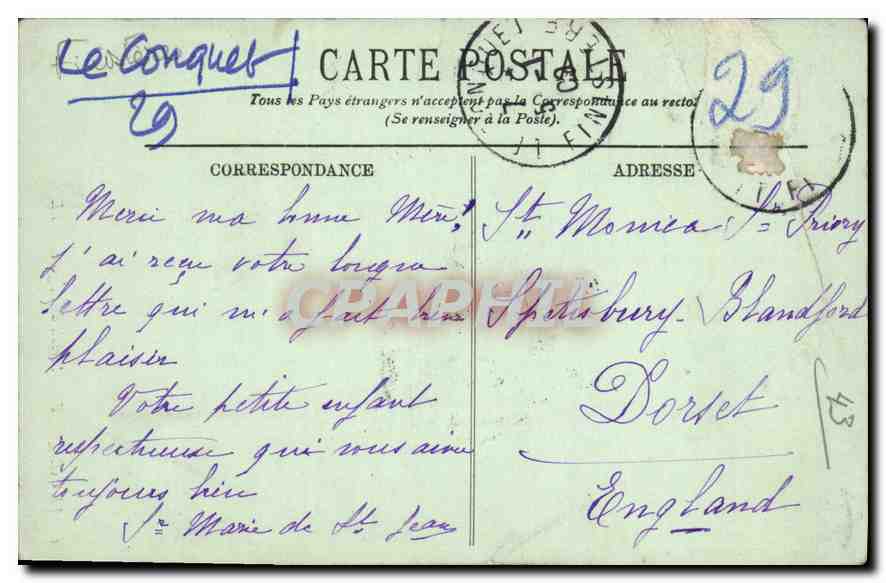 Le Conquet
29
CARTE POSTALE
Tous les Pays étrangers n'acceptent pas la Correspondance au recto.
(Se renseigner à la Poste).
29
FINISTERE
CORRESPONDANCE
ADRESSE
Merci ma bonne Mère!
j'ai reçu votre longue
lettre qui m'a fait bien
plaisir
Votre petite enfant
respectueuse qui vous aime
toujours bien
Sr Marie de St Jean
St Monica's Priory
Spetisbury Blandford
Dorset
England
43
CPAPHIL